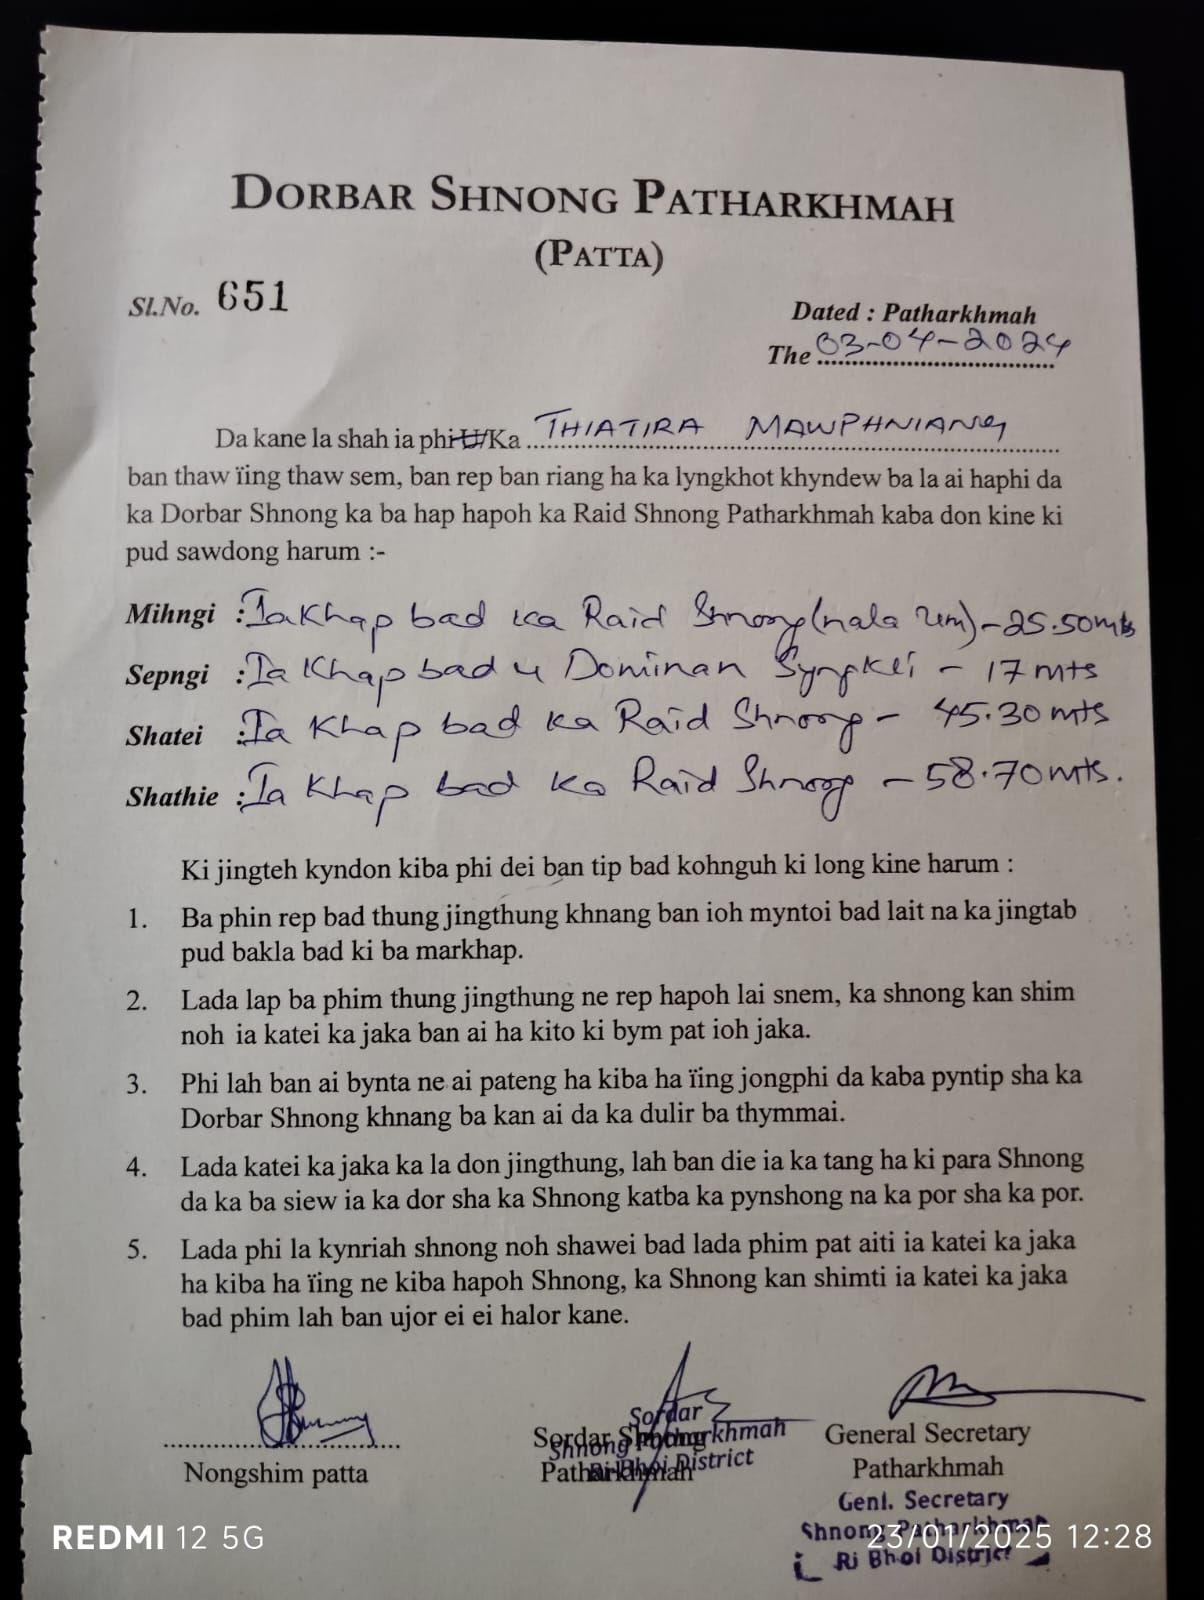 DORBAR SHNONG PATHARKHMAH
(PATTA)
Sl.No. 651
Dated : Patharkhmah
The 03-04-2024
Da kane la shah ia phi U/Ka THIATIRA MAWPHNIANG
ban thaw ïing thaw sem, ban rep ban riang ha ka lyngkhot khyndew ba la ai haphi da
ka Dorbar Shnong ka ba hap hapoh ka Raid Shnong Patharkhmah kaba don kine ki
pud sawdong harum :-
Mihngi : Ia Khap bad ka Raid Shnong (nala Um) - 25.50 mts
Sepngi : Ia Khap bad u Dominan Syngkli - 17 mts
Shatei : Ia Khap bad ka Raid Shnong - 45.30 mts
Shathie : Ia Khap bad ka Raid Shnong - 58.70 mts.
Ki jingteh kyndon kiba phi dei ban tip bad kohnguh ki long kine harum :
1. Ba phin rep bad thung jingthung khnang ban ioh myntoi bad lait na ka jingtab
pud bakla bad ki ba markhap.
2. Lada lap ba phim thung jingthung ne rep hapoh lai snem, ka shnong kan shim
noh ia katei ka jaka ban ai ha kito ki bym pat ioh jaka.
3. Phi lah ban ai bynta ne ai pateng ha kiba ha ïing jongphi da kaba pyntip sha ka
Dorbar Shnong khnang ba kan ai da ka dulir ba thymmai.
4. Lada katei ka jaka ka la don jingthung, lah ban die ia ka tang ha ki para Shnong
da ka ba siew ia ka dor sha ka Shnong katba ka pynshong na ka por sha ka por.
5. Lada phi la kynriah shnong noh shawei bad lada phim pat aiti ia katei ka jaka
ha kiba ha ïing ne kiba hapoh Shnong, ka Shnong kan shimti ia katei ka jaka
bad phim lah ban ujor ei ei halor kane.
Nongshim patta
Sordar Shnong
Patharkhmah
Sordar
Shnong Patharkhmah
Ri Bhoi District
General Secretary
Patharkhmah
Genl. Secretary
Shnong Patharkhmah
Ri Bhoi District
REDMI 12 5G
23/01/2025 12:28